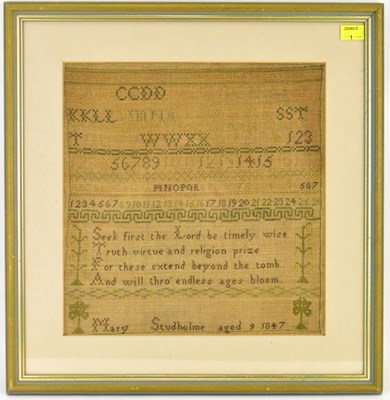 1
CCDD
KKLL SST
T WWXX 123
56789 12131415
MNOPQR 567
1234567 8 9 10 11 12 13 14 15 16 17 18 19 20 21 22 23 24 25 26
Seek first the Lord be timely wise
Truth virtue and religion prize
For these extend beyond the tomb
And will thro' endless ages bloom
Mary Studholme aged 9 1847